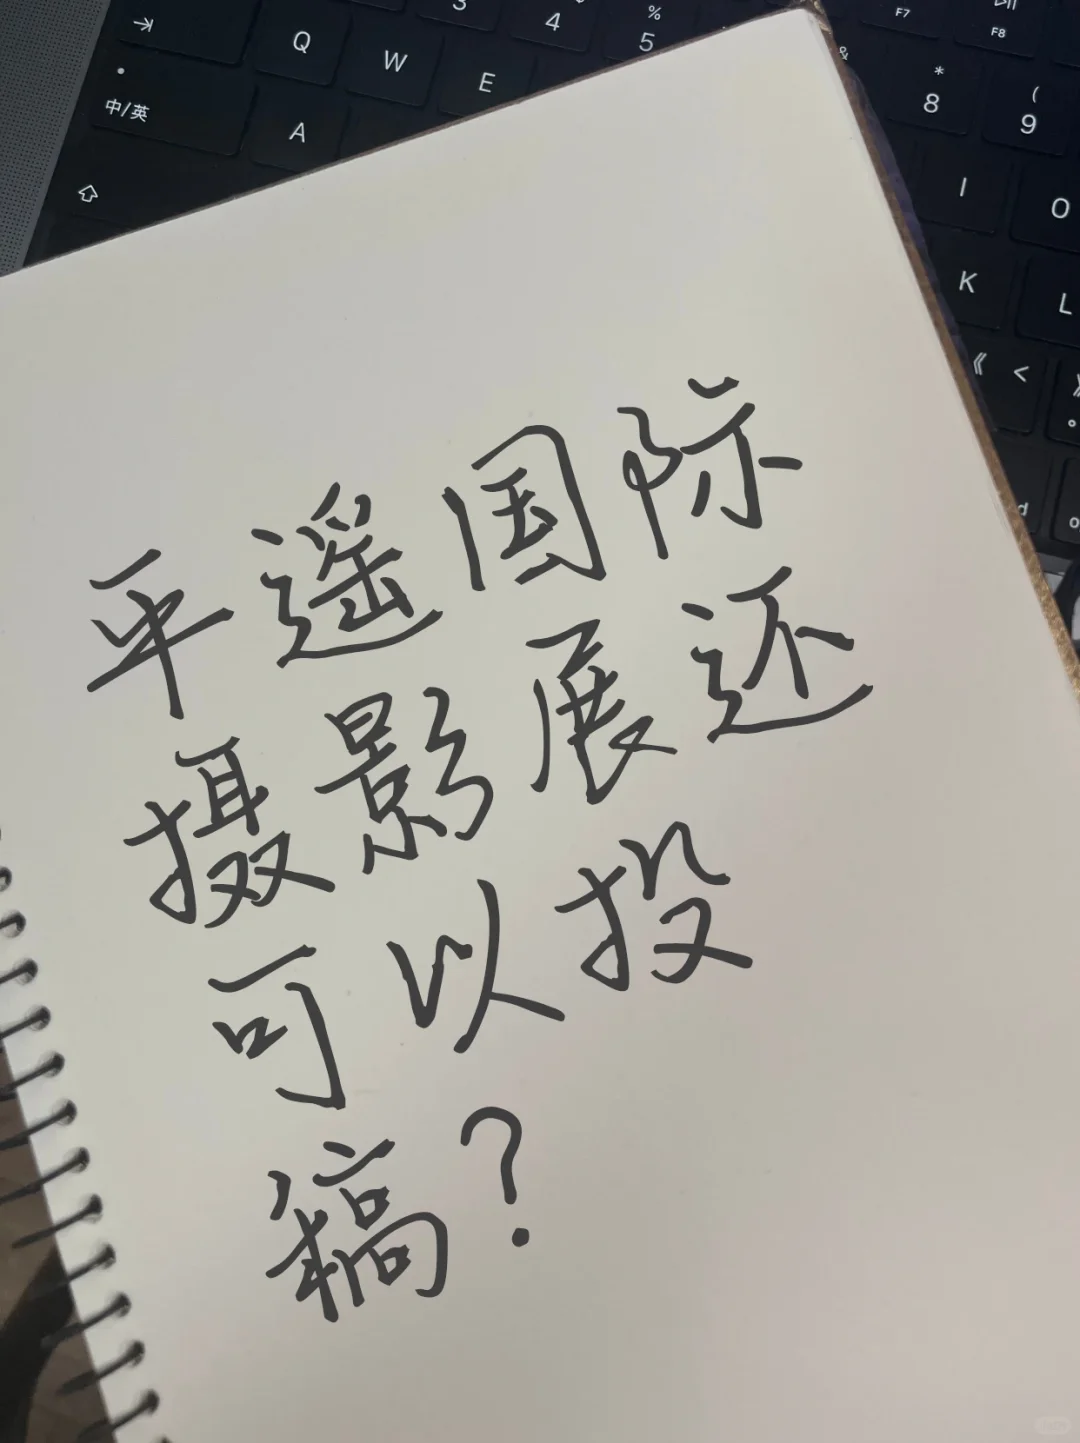 3
4
%
5
F7
F8
Q
W
E
&
*
8
(
9
中/英
A
I
O
K
L
《 <
平遥国际
摄影展还
可以投
稿？